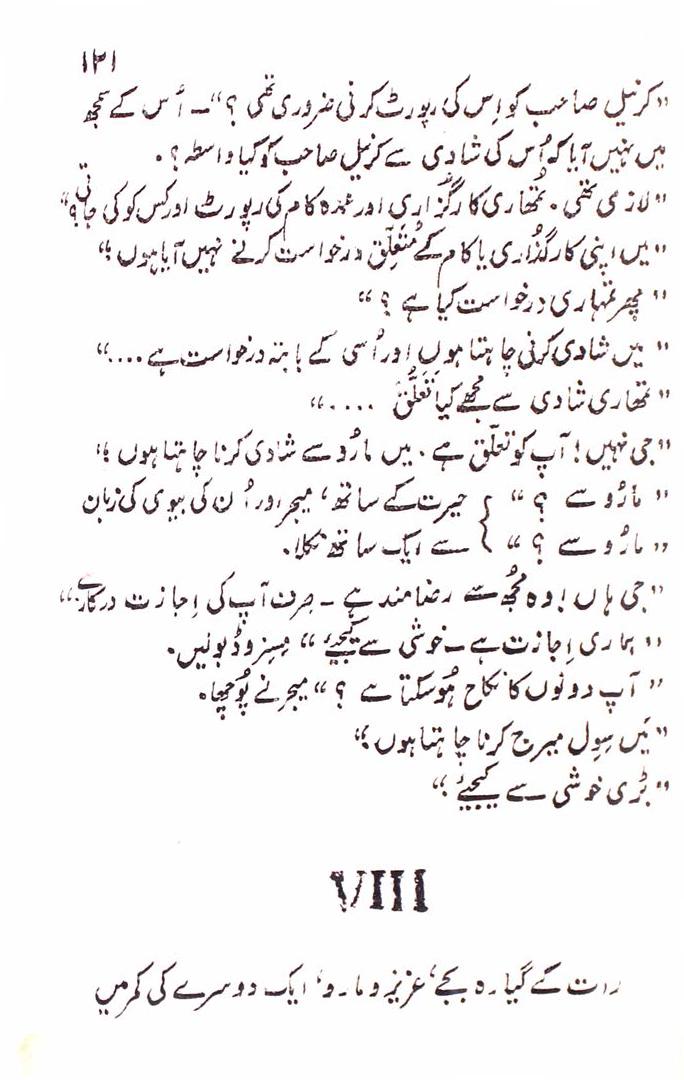 ۱۲۱
"کرنیل صاحب کو اِس کی رپورٹ کرنی ضروری تھی ؟" ــ اُس کے سمجھ
میں نہیں آیا کہ اُس کی شادی سے کرنیل صاحب کو کیا واسطہ ؟.
"لازمی تھی. تُمھاری کارگزاری اور عمدہ کام کی رپورٹ اور کس کو کی جاتی؟"
"میں اپنی کارگذاری یا کام کے مُتعلّق درخواست کرنے نہیں آیا ہوں !"
"پھر تمہاری درخواست کیا ہے ؟"
"میں شادی کرنی چاہتا ہوں اور اُسی کے بابتہ درخواست ہے ...."
"تمھاری شادی سے مجھے کیا تَعَلُّق ...."
"جی نہیں ! آپ کو تعلّق ہے . میں مارُو سے شادی کرنا چاہتا ہوں !"
"مارُو سے ؟" } حیرت کے ساتھ، میجر اور اُن کی بیوی کی زبان
"مارُو سے ؟" } سے ایک ساتھ نکلا.
"جی ہاں ! وہ مُجھ سے رضامند ہے ــ صرف آپ کی اِجازت درکار ہے."
"ہماری اِجازت ہے ــ خوشی سے کیجیے" مِسِز وڈ بولیں.
"آپ دونوں کا نکاح ہُوسکتا ہے ؟" میجر نے پُوچھا.
"مَیں سِوِل میرج کرنا چاہتا ہوں !"
"بڑی خوشی سے کیجیے !"
VIII
رات کے گیارہ بجے، عزیز و مارو، ایک دوسرے کی کمر میں